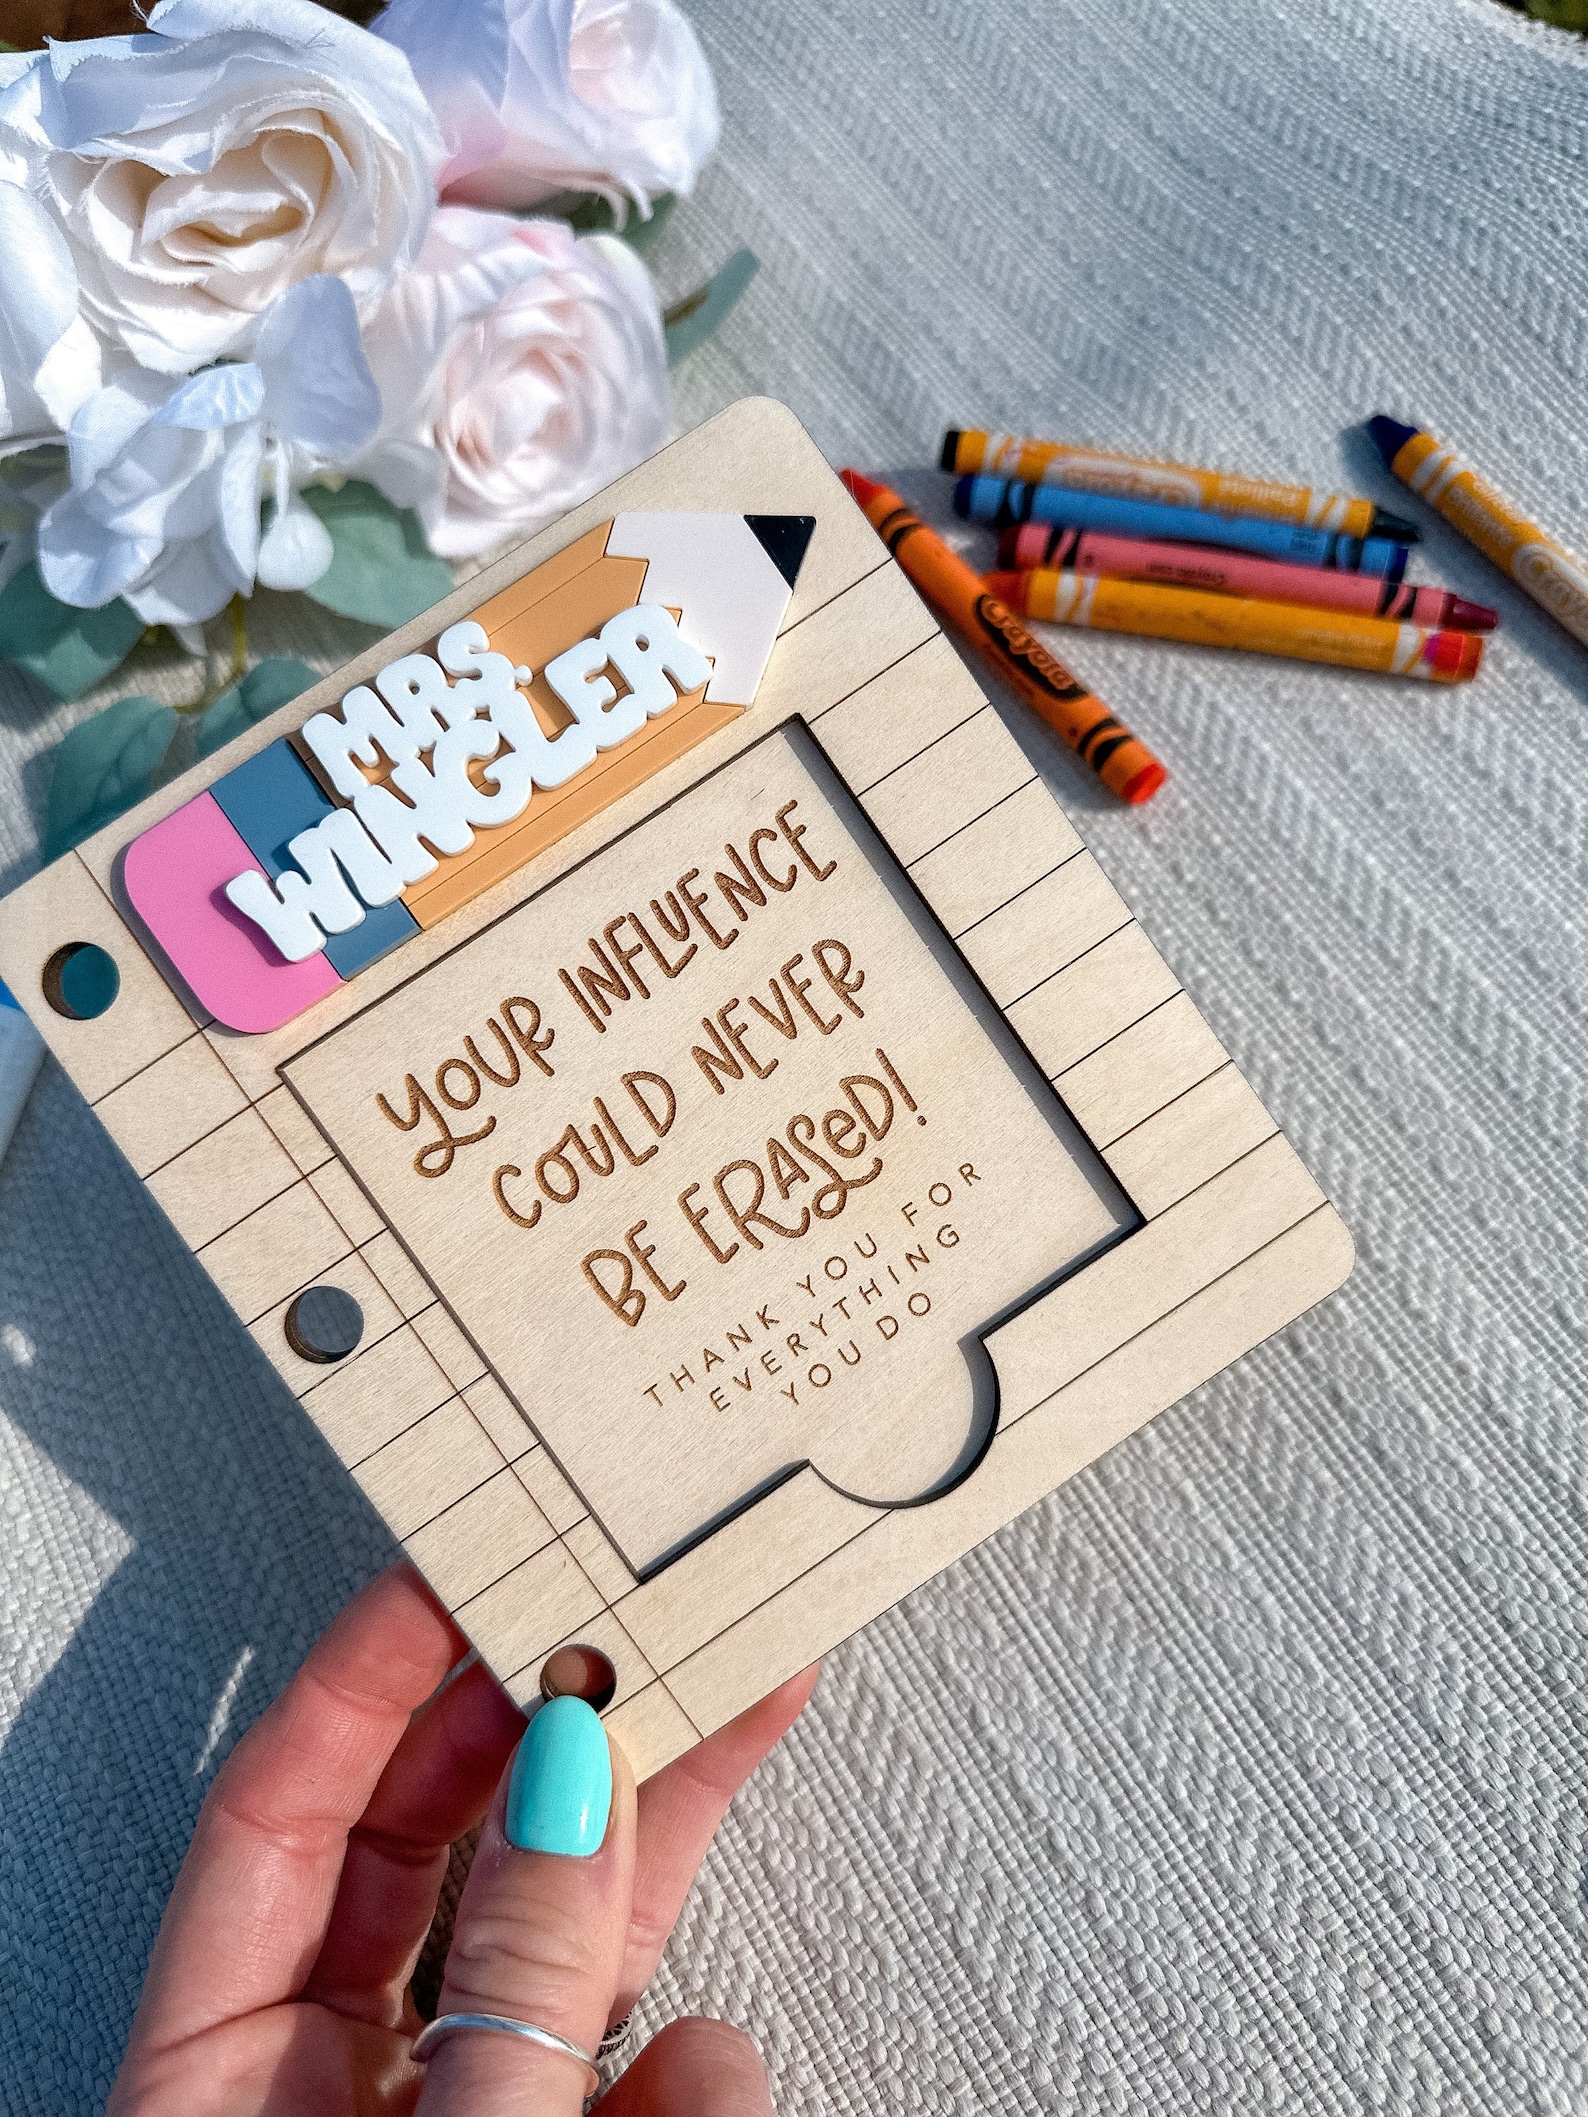 MRS.
WINGLER
YOUR INFLUENCE
COULD NEVER
BE ERASED!
THANK YOU FOR
EVERYTHING
YOU DO
Crayola
Crayola
Crayola